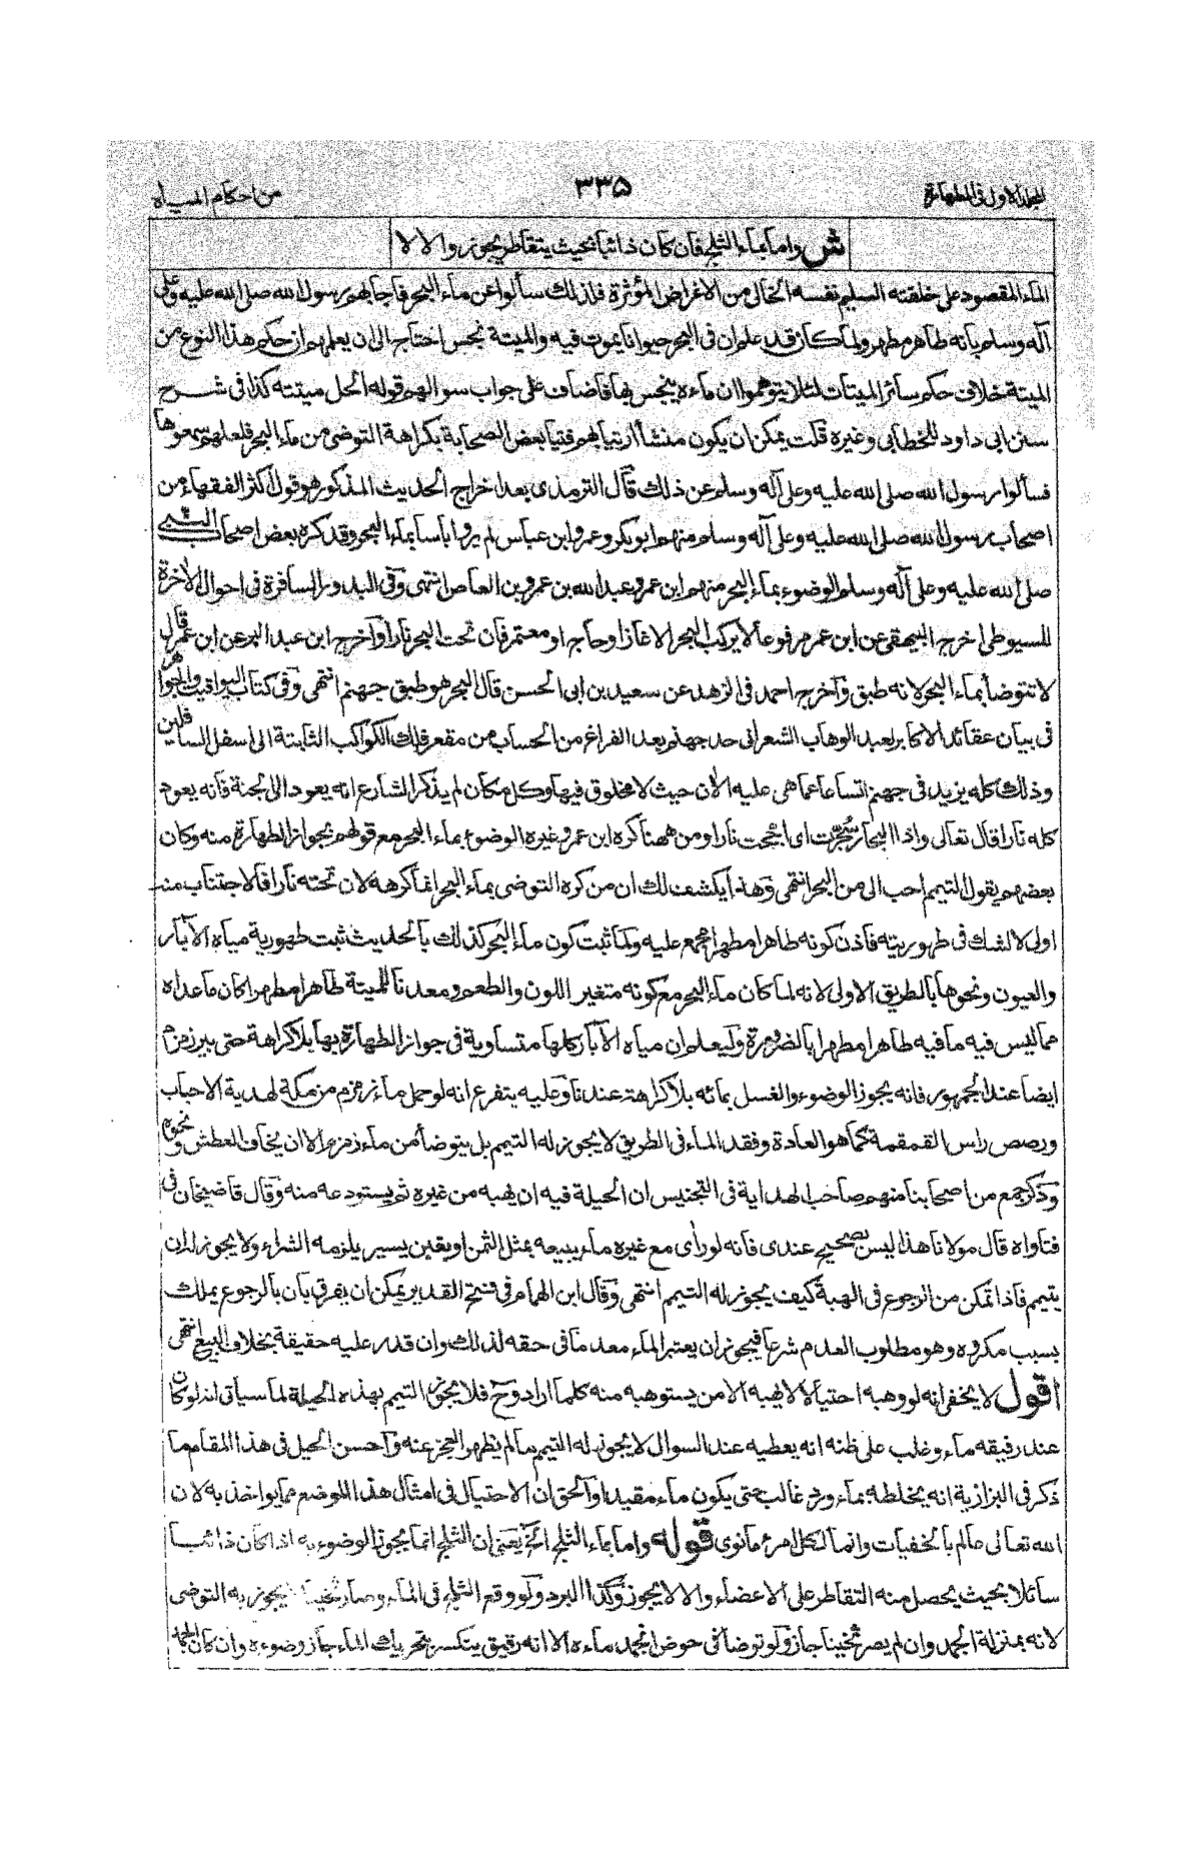 المجلد الاول فى الطهارة
٣٣٥
من احكام المياه
ش واما بماء الثلج فان كان ذائبا بحيث يتقاطر يجوز والا لا
الماء المقصود على خلقته السليم نفسه الخالى من الاغراض المؤثرة فلذلك سألوا عن ماء البحر فاجابهم رسول الله صلى الله عليه وعلى
آله وسلم بانه طاهر مطهر ولما كان قد علم ان فى البحر حيوانا يموت فيه والميتة نجس احتاج الى ان يعلمهم ان حكم هذا النوع من
الميتة خلاف حكم سائر الميتات لئلا يتوهموا ان ماءه ينجس بها فاضاف على جواب سوالهم قوله الحل ميتته كذا فى شرح
سنن ابى داود للخطابى وغيره قلت يمكن ان يكون منشأ ارتيابهم فتيا بعض الصحابة بكراهة التوضى من ماء البحر فلعلهم سمعوها
فسألوا رسول الله صلى الله عليه وعلى آله وسلم عن ذلك قال الترمذى بعد اخراج الحديث المذكور هو قول اكثر الفقهاء من
اصحاب رسول الله صلى الله عليه وعلى آله وسلم منهم ابو بكر وعمر وابن عباس لم يروا باسا بماء البحر وقد كره بعض اصحاب النبى
صلى الله عليه وعلى آله وسلم الوضوء بماء البحر منهم ابن عمر وعبد الله بن عمرو بن العاص انتهى وفى البدور السافرة فى احوال الآخرة
للسيوطى اخرج البيهقى عن ابن عمر مرفوعا لا يركب البحر الا غاز او حاج او معتمر فان تحت البحر نارا وآخرج ابن عبد البر عن ابن عمر قال
لا تتوضأ بماء البحر لانه طبق وآخرج احمد فى الزهد عن سعيد بن ابى الحسن قال البحر هو طبق جهنم انتهى وفى كتاب اليواقيت والجواهر
فى بيان عقائد الاكابر لعبد الوهاب الشعرانى حد جهنم بعد الفراغ من الحساب من مقعر فلك الكواكب الثابتة الى اسفل السافلين
وذلك كله يزيد فى جهنم اتساعا عما هى عليه الآن حيث لا مخلوق فيها وكل مكان لم يذكر الشارع انه يعود الى الجنة فانه يعود
كله نارا قال تعالى واذا البحار سُجّرت اى اججت نارا ومن ههنا كره ابن عمر وغيره الوضوء بماء البحر مع قولهم بجواز الطهارة منه وكان
بعضهم يقول التيمم احب الى من البحر انتهى وهذا يكشف لك ان من كره التوضى بماء البحر انما كرهه لان تحته نارا فالاجتناب منه
اولى لا لشك فى طهوريته فاذن كونه طاهرا مطهرا مجمع عليه ولما ثبت كون ماء البحر كذلك بالحديث ثبت طهورية مياه الآبار
والعيون ونحوها بالطريق الاولى لانه لما كان ماء البحر مع كونه متغير اللون والطعم ومعدنا للميتة طاهرا مطهرا كان ما عداه
مما ليس فيه ما فيه طاهرا مطهرا بالضرورة وليعلم ان مياه الآبار كلها متساوية فى جواز الطهارة بها بلا كراهة حتى بير زمزم
ايضا عند الجمهور فانه يجوز الوضوء والغسل بمائه بلا كراهته عندنا وعليه يتفرع انه لو حمل ماء زمزم من مكة لهدية الاحباب
ورصص راس القمقمة كما هو العادة وفقد الماء فى الطريق لا يجوز له التيمم بل يتوضأ من ماء زمزم الا ان يخاف العطش ونحوه
وذكر جمع من اصحابنا منهم صاحب الهداية فى التجنيس ان الحيلة فيه ان يهبه من غيره ثم يستودعه منه وقال قاضيخان فى
فتاواه قال مولانا هذا ليس بصحيح عندى فانه لو رأى مع غيره ماء يبيعه بمثل الثمن او بغبن يسير يلزمه الشراء ولا يجوز له ان
يتيمم فاذا تمكن من الرجوع فى الهبة كيف يجوز له التيمم انتهى وقال ابن الهمام فى فتح القدير يمكن ان يفرق بان بالرجوع يملك
بسبب مكروه وهو مطلوب العدم شرعا فيجوز ان يعتبر الماء معدما فى حقه لذلك وان قدر عليه حقيقة بخلاف البيع انتهى
اقول لا يخفى انه لو وهبه احتيالا لا يهبه الا من يستوهبه منه كلما اراد وح فلا يجوز التيمم بهذه الحيلة لما سياتى انه لو كان
عند رفيقه ماء وغلب على ظنه انه يعطيه عند السوال لا يجوز له التيمم ما لم يظهر العجز عنه وآحسن الحيل فى هذا المقام ما
ذكر فى البزازية انه يخلطه بماء ورد غالب حتى يكون ماء مقيدا والحق ان الاحتيال فى امثال هذا الموضع مما يواخذ به لان
الله تعالى عالم بالخفيات وانما لكل امرء ما نوى قوله واما بماء الثلج الخ يعنى ان الثلج انما يجوز الوضوء به اذا كان ذائبا
سائلا بحيث يحصل منه التقاطر على الاعضاء والا لا يجوز وكذا البرد ولو وقع الثلج فى الماء وصار ثخينا لا يجوز به التوضى
لانه بمنزلة الجمد وان لم يصر ثخينا جاز ولو توضأ فى حوض انجمد ماءه الا انه رقيق ينكسر بتحريك الماء جاز وضوءه وان كان الجمد